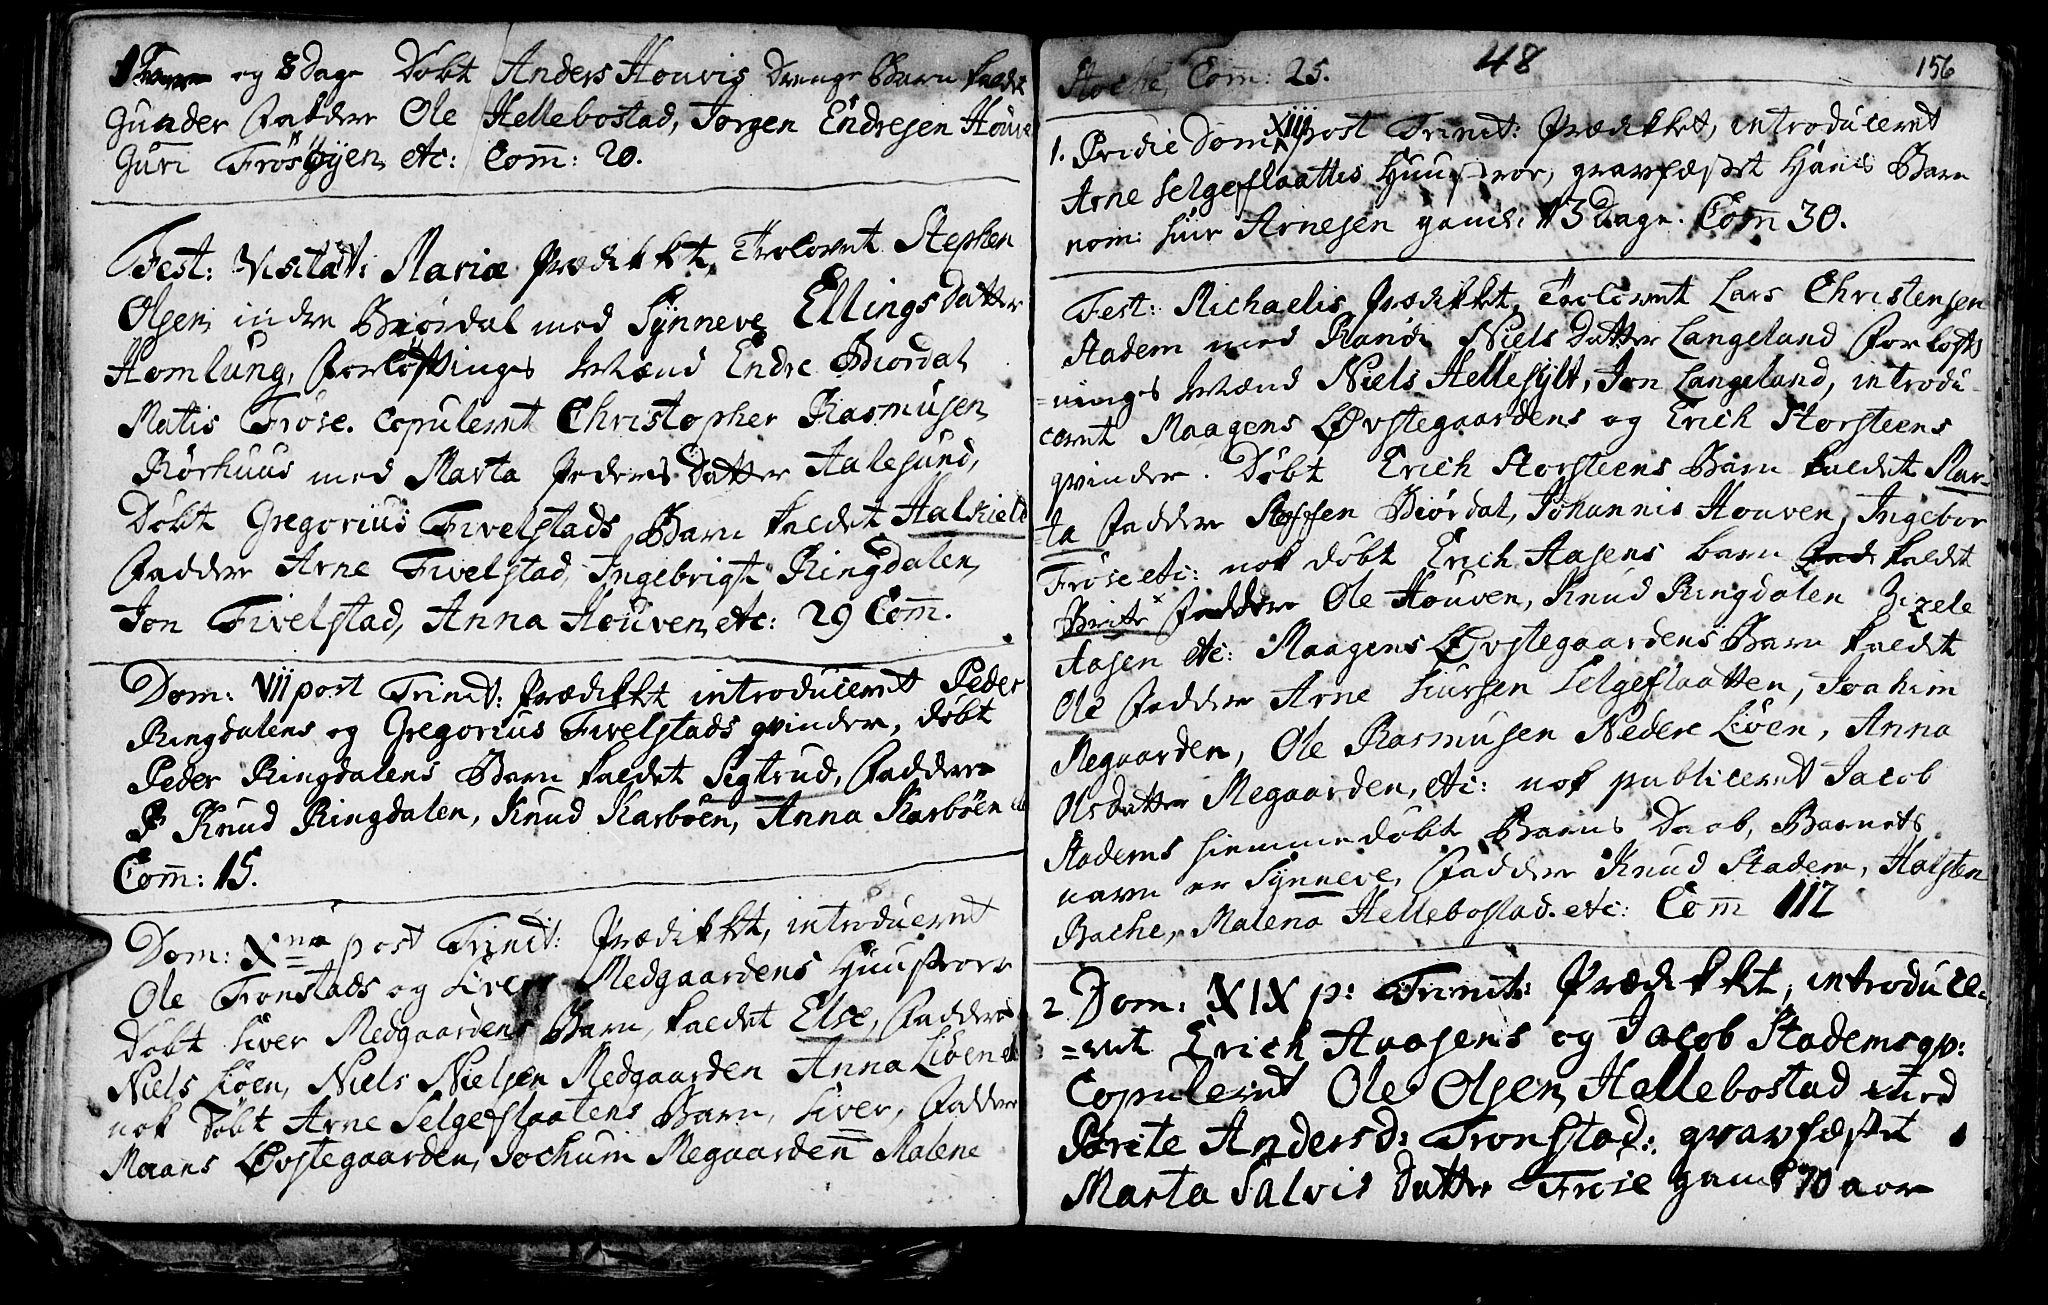 og 8 Dage Døbt Anders Houvis Drenge Barn kaldt
Gunder Faddre Ole Hellebostad, Jorgen Endresen Houve
Guri Frösöyen etc: Com̄: 20.
Fest: Visitat: Mariæ Prædikket, Trolovet Stephen
Olsen indre Biördal med Synneve Ellings datter
Homlung, Forløftinges Mænd Endre Biordal
Matis Fröse. copuleret Christopher Rasmusen
Rörhuus med Marta Peders datter Aalesund,
Døbt Gregorius Fivelstads Barn kaldet Halkield
Faddre Arne Fivelstad, Ingebrigt Ringdalen,
Jon Fivelstad, Anna Houven, etc: 29 Com̄.
Dom: VII post Trinit: Prædikket introduceret Peder
Ringdalens og Gregorius Fivelstads qvinder, døbt
Peder Ringdalens Barn kaldet Sigtrud, Faddere
Knud Ringdalen, Knud Karböen, Anna Karböen etc
Com̄: 15.
Dom: X post Trinit: Prædikket, introduceret
Ole Tronstads og Siver Medgaardens Huustroer
Døbt Siver Medgaardens Barn, kaldet Else, Faddere
Niels Liöen, Niels Nielsen Medgaarden Anna Liöen etc
nok Døbt Arne Selgeflaatens Barn, Siver, Faddre
Maans Øvstegaarden, Jochum Megaarden Malene
48
156
Com̄: 25.
1. Pridie Dom: XIII post Trinit: Prædikket, introduceret
Arne Selgeflaattes Huustroe, gravfæstet Hans Barn
nom: Siur Arnesen gaml. 13 Dage. Com̄ 30.
Fest: Michaelis Prædikket, Trolovet Lars Christensen
Stadem med Randi Niels Datter Langeland Forløft
=ninges Mænd Niels Hellesylt, Jon Langeland, introdu-
ceret Maagens Øvstegaardens og Erich Storsteens
qvinder. Døbt Erich Storsteens Barn kaldet Mar-
ta Faddre Steffen Biördal, Johannis Houven, Ingebor
Fröse etc: nok døbt Erich Aasens barn Fad kaldet
Brite Faddere Ole Houven, Knud Ringdalen Zizele
Aasen etc: Maagens Øvstegaardens Barn kaldet
Ole Faddre Arne Siursen Selgeflaatten, Joahim
Megaarden, Ole Rasmusen Nedere Liöen, Anna
Olsdatter Megaarden, etc: nok publiceret Jacob
Stadems hiemmedøbt Barns Daab, Barnets
navn er Synneve, Faddre Knud Stadem, Halsten
Bache, Malena Hellebostad. etc: Com̄ 117
2 Dom: XIX p: Trinit: Prædikket, introduce-
=ret Erich Aasens og Jacob Stadems qv:
Copuleret Ole Olsen Hellebostad med
Brite Andersd: Tronstad: gravfæstet
Marta Salvis datter Fröse gaml 70 aar